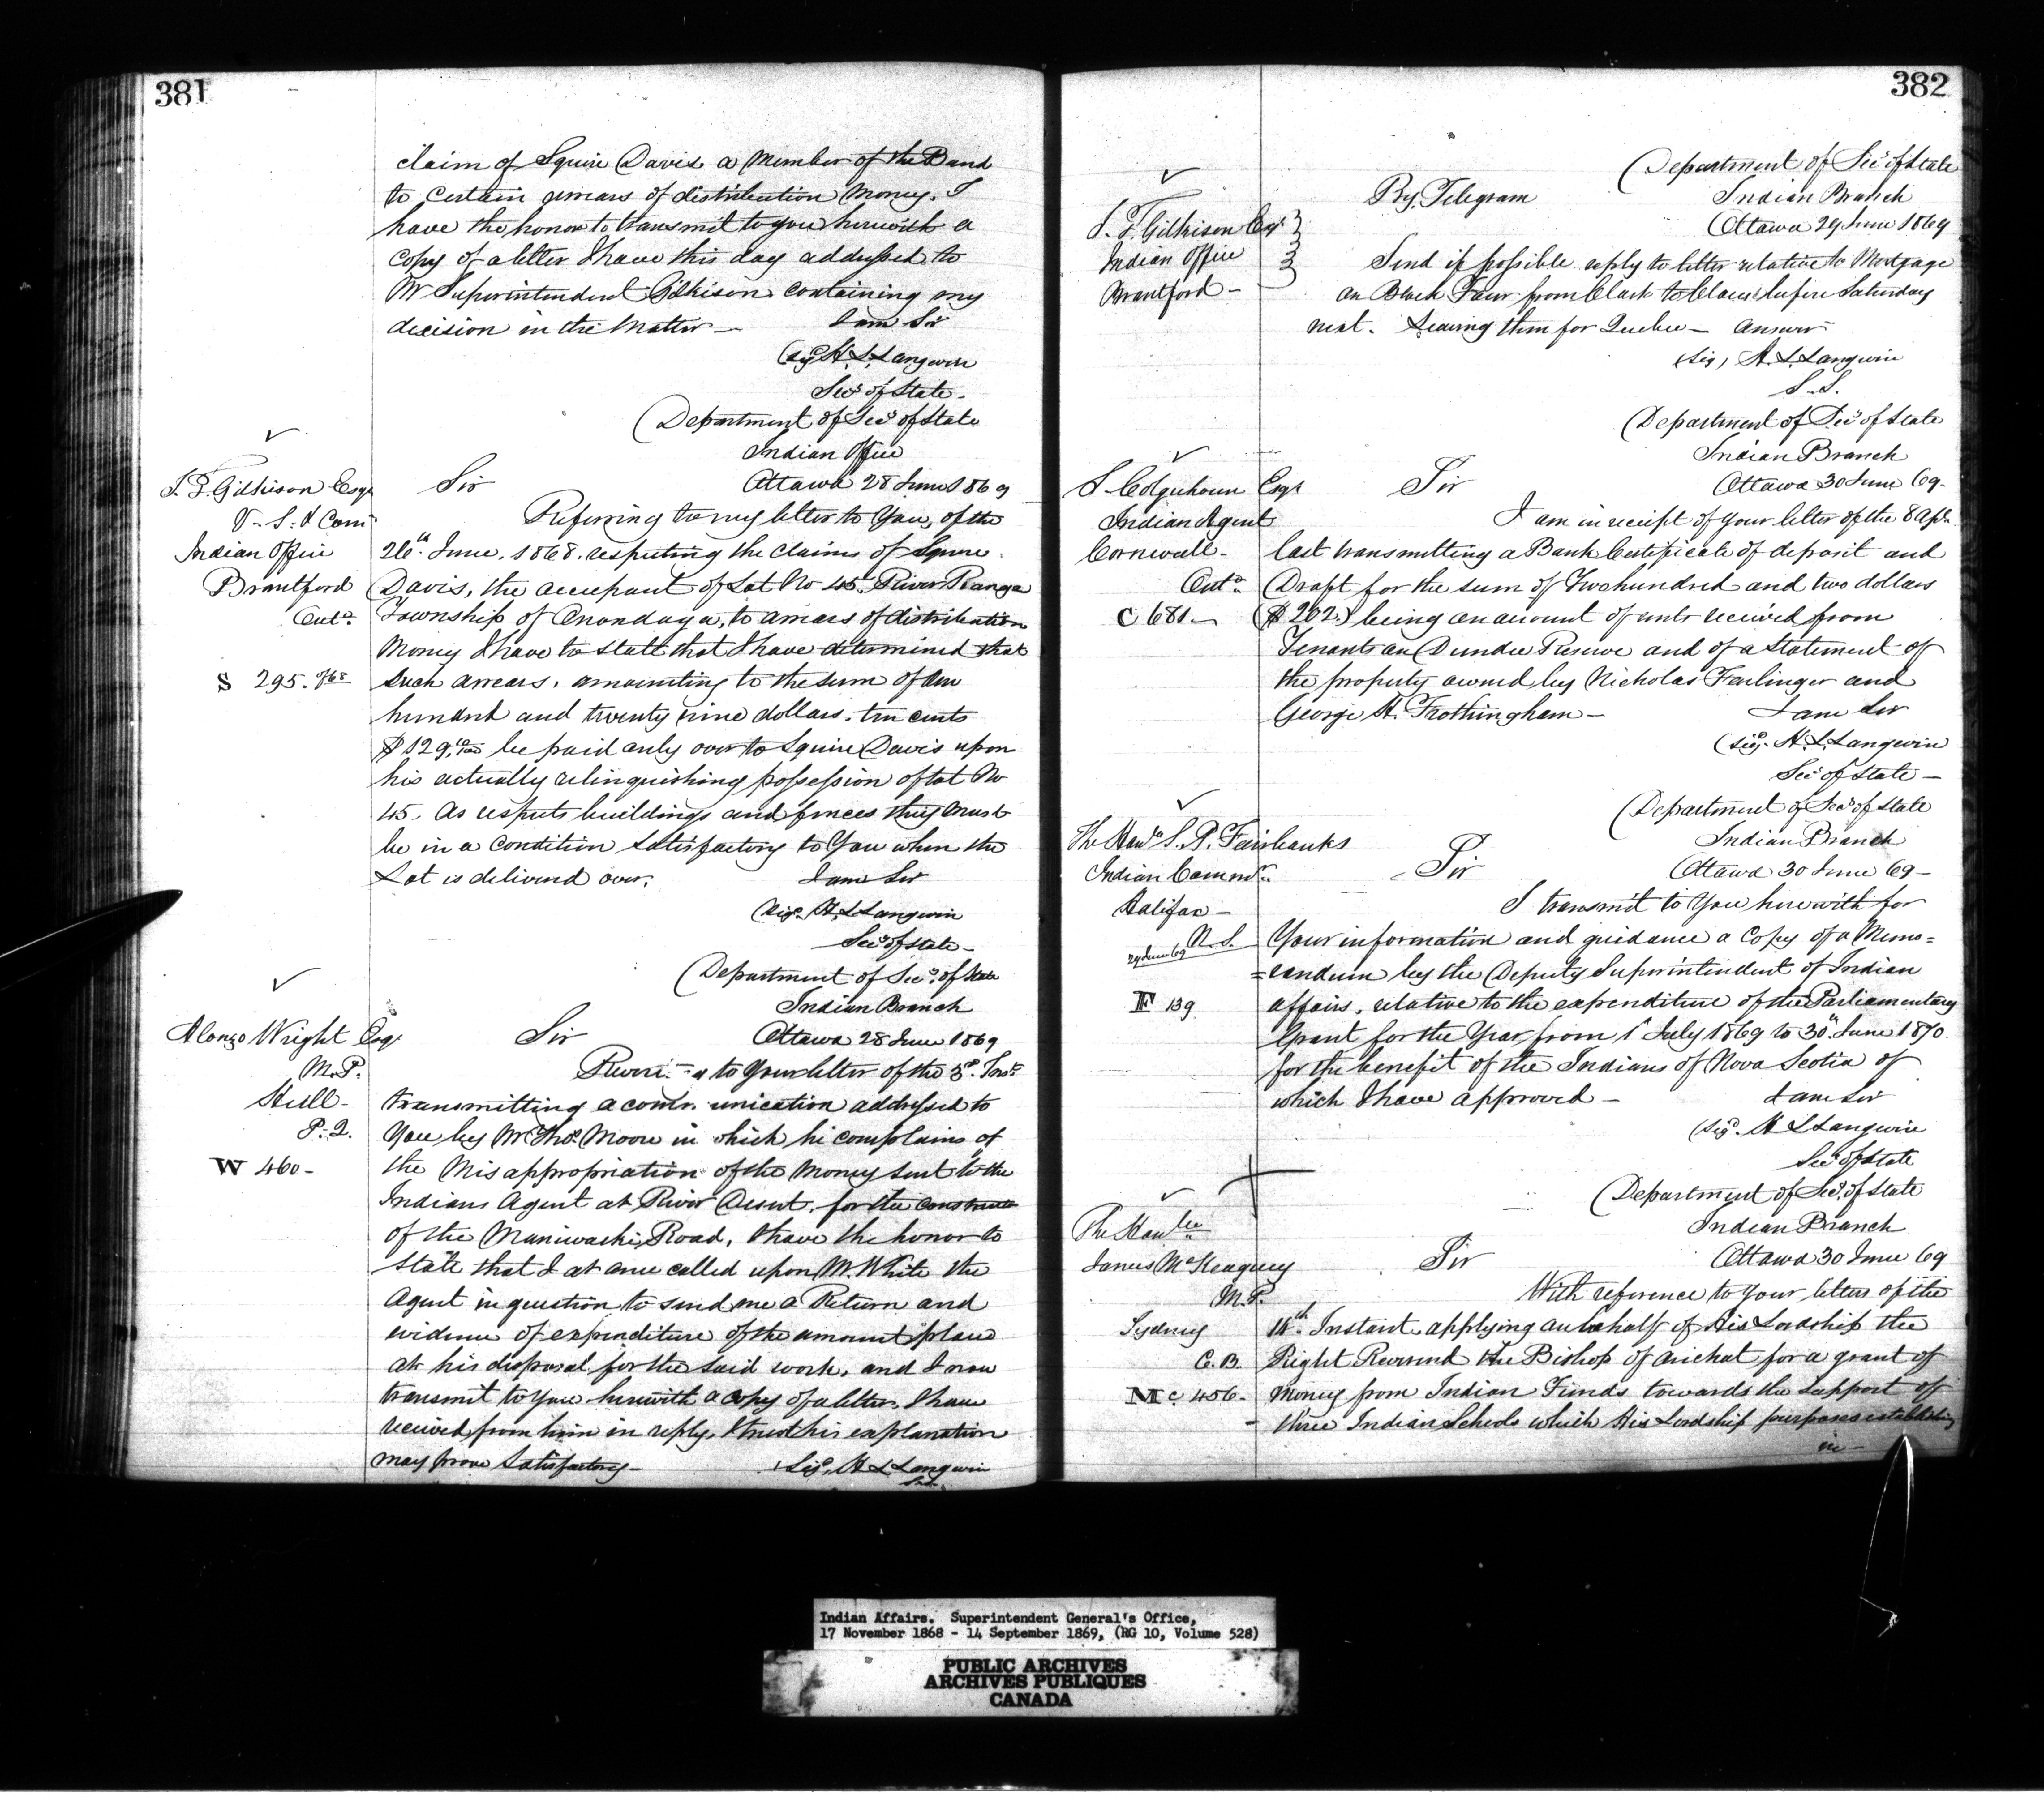 381
claim of Squire Davis a Member of the Band
to Certain arrears of distribution Money. I
have the honor to transmit to you herewith a
Copy of a letter I have this day addressed to
Mr Superintendent Gilkison containing my
decision in the Matter — I am Sir
(Sigd H. L. Langevin
Secy of State.
Department of Secy of State
Indian Office
Sir Ottawa 28 June 1869
J. T. Gilkison Esqr
V. S. & Comr
Indian Office
Brantford
Onto
S 295. of 68
Referring to my letter to You, of the
26th June. 1868. respecting the Claims of Squire
Davis, the occupant of Lot No 45. River Range
Township of Onondaga, to arrears of distribution
Money I have to state that I have determined that
such arrears. amounting to the sum of One
hundred and twenty nine dollars. ten cents
$129.10/100 be paid only over to Squire Davis upon
his actually relinquishing possession of Lot No
45. As respects buildings and fences they must
be in a Condition Satisfactory to You when the
Lot is delivered over. I am Sir
(Sigd. H. L. Langevin
Secy of State —
Department of Secy. of State
Indian Branch
Sir Ottawa 28 June 1869
Alonzo Wright Esqr
M.P.
Hull —
P. Q.
W 460 —
to Your letter of the 3d. Inst
transmitting a communication addressed to
You by Mr Thos Moore in which he complains of
the Misappropriation of the Money sent to the
Indians Agent at River Desert. for the construct
of the Maniwaki Road, I have the honor to
State that I at once called upon Mr. White the
Agent in question to send me a Return and
evidence of expenditure of the amount place
at his disposal for the said work, and I now
transmit to You herewith a copy of a letter I have
received from him in reply. I trust his explanation
may prove Satisfactory — (Sigd. H L Langevin
382
Department of Secy of State
By Telegram Indian Branch
Ottawa 29 June 1869
J. T. Gilkison Esqr
Indian Office
Brantford —
Send if possible reply to letter relative to Mortgage
on Block Four from Clark to before Saturday
next. Leaving then for Quebec — Answer
(Sig) H. L. Langevin
S. S.
Department of Secy of State
Indian Branch
Sir Ottawa 30 June 69 —
S Colquhoun Esqr
Indian Agent
Cornwall —
Onto
C 681 —
I am in receipt of Your letter of the 8 Apl.
last transmitting a Bank Certificate of deposit and
Draft for the sum of Two hundred and two dollars
($202.) being an amount of rents received from
Tenants on Dundee Reserve and of a Statement of
the property owned by Nicholas Farlinger and
George H. Frothingham — I am Sir
(Sigd. H. L. Langevin
Secy of State —
Department of Secy of State
Indian Branch
Sir Ottawa 30 June 69 —
The Honble S. P. Fairbanks
Indian Commr.
Halifax —
N. S.
29 June 69
F 139
I transmit to You herewith for
Your information and guidance a Copy of a Memo=
=randum by the Deputy Superintendent of Indian
affairs, relative to the expenditure of the Parliamentary
Grant for the Year from 1st July 1869 to 30th June 1870
for the benefit of the Indians of Nova Scotia of
which I have approved — I am Sir
(Sigd. H L Langevin
Secy of State
Department of Secy. of State
Indian Branch
Sir Ottawa 30 June 69
The Honble
James McKeagney
M.P.
Sydney
C. B.
Mc 456 —
With reference to Your letter of the
14th Instant applying on behalf of His Lordship the
Right Reverend the Bishop of Arichat for a grant of
money from Indian Funds towards the support of
three Indian Schools which His Lordship purposes establishing
in —
Indian Affairs. Superintendent General's Office,
17 November 1868 - 14 September 1869, (RG 10, Volume 528)
PUBLIC ARCHIVES
ARCHIVES PUBLIQUES
CANADA